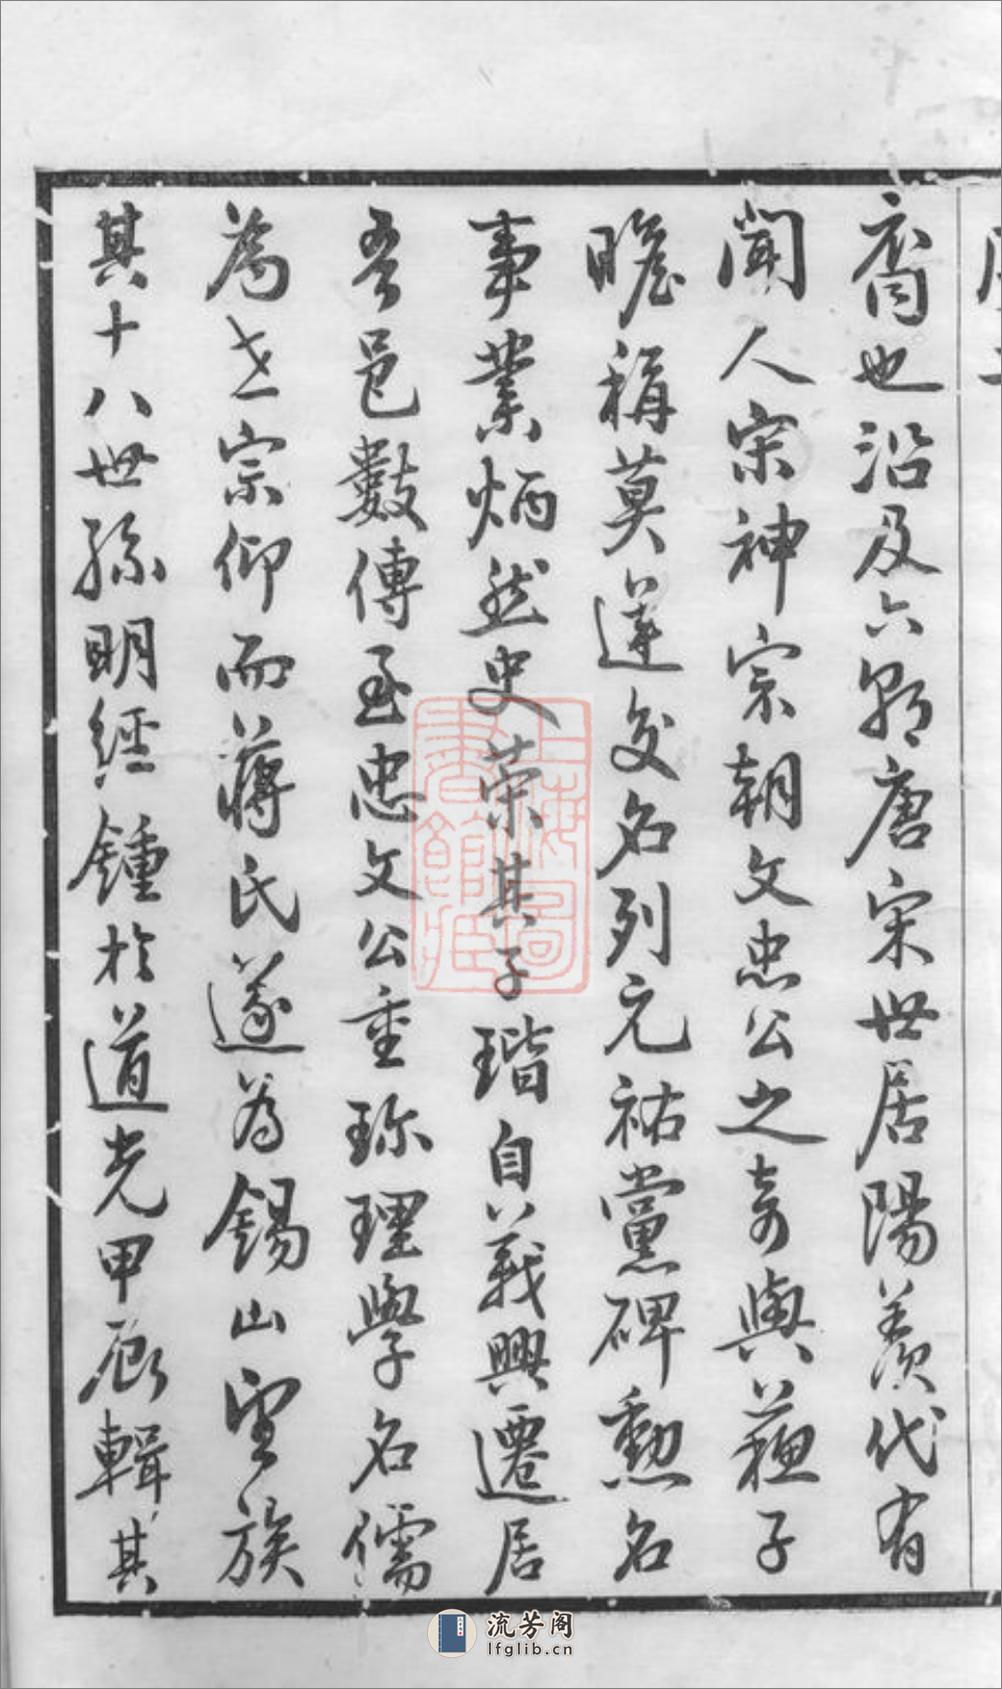 裔也沿及六朝唐宋世居陽羨代有
聞人宋神宗朝文忠公之奇與蘇子
瞻稱莫逆交名列元祐黨碑勲名
事業炳然史策其子瑎自義興遷居
吾邑數傳至忠文公重珍理學名儒
為世宗仰而蔣氏遂為錫山望族
其十八世孫明經鍾於道光甲辰輯其
上海圖書館藏
流芳阁
lfglib.cn